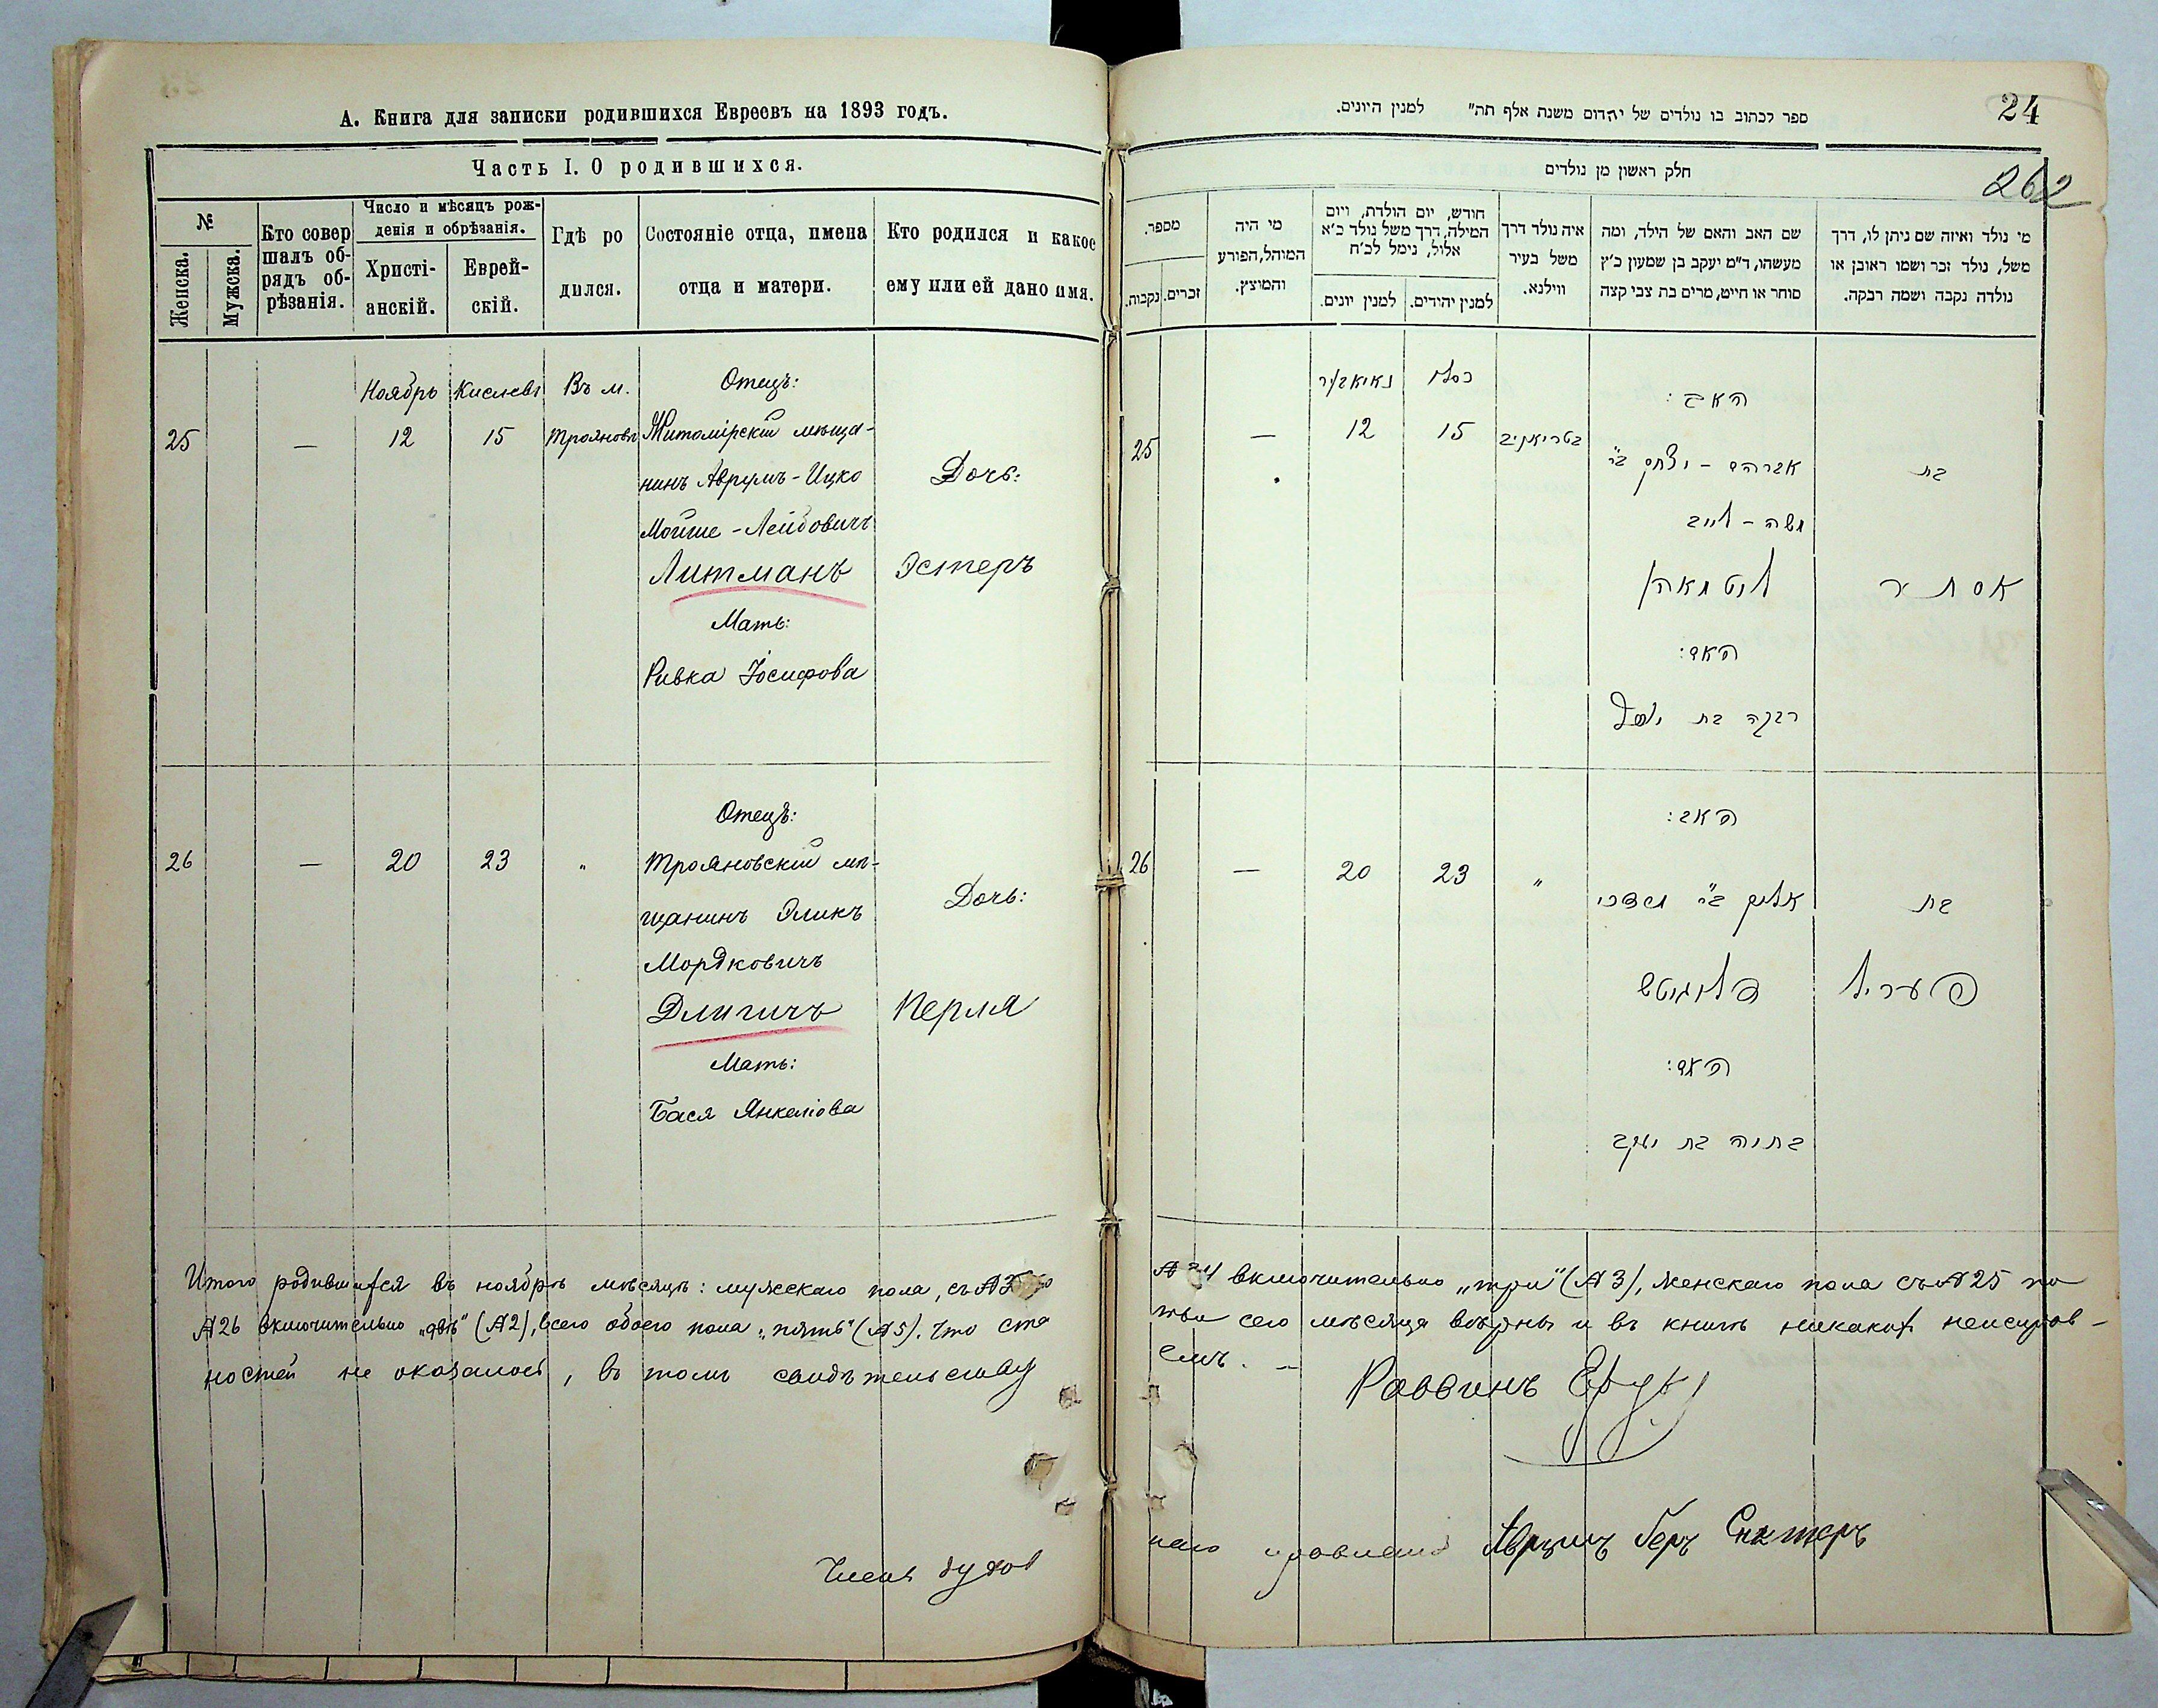 А. Книга для записки родившихся Евреевъ на 1893 годъ.
Часть I. О родившихся.
№
Женска.
Мужска.
Кто совер
шалъ об-
рядъ об-
рѣзанія.
Число и мѣсяцъ рож-
денія и обрѣзанія.
Христі-
анскій.
Еврей-
скій.
Гдѣ ро
дился.
Состояніе отца, имена
отца и матери.
Кто родился и какое
ему или ей дано имя.
Ноябрь Кислевъ Въ м. Отецъ:
25 — 12 15 Трояновъ Житомірскій мѣща-
нинъ Аврумъ-Ицко Дочь:
Мойше-Лейбовичъ
Литманъ Эстеръ
Мать:
Ривка Іосифова
Отецъ:
26 — 20 23 " Трояновскій мѣ-
щанинъ Эликъ Дочь:
Мордковичъ
Длигичъ Перля
Мать:
Бася Янкелева
Итого родившихся въ ноябрѣ мѣсяцѣ: мужескаго пола, съ №
№26 включительно „двѣ" (№2), всего обоего пола „пять" (№5). Что ста
ностей не оказалось, въ томъ свидѣтельству
Членъ духов
24
262
ספר לכתוב בו נולדים של יהדום משנת אלף תה" למנין היונים.
חלק ראשון מן נולדים
מספר.
נקבות.
זכרים.
מי היה
המוהל, הפורע
והמוצץ.
חורש, יום הולדת, ויום
המילה, דרך משל נולד כ'א
אלול, נימל לכ'ח
למנין יונים.
למנין יהידים.
איה נולד דרך
משל בעיר
ווילנא.
שם האב והאם של הילד, ומה
מעשהו, ד"מ יעקב בן שמעון כ'ץ
סוחר או חייט, מרים בת צבי קצה
מי נולד ואיזה שם ניתן לו, דרך
משל, נולד זכר ושמו ראובן או
נולדה נקבה ושמה רבקה.
האב: כסלו נאיאבער
25 — 12 15 בטריאניב
אברהם - יצחק ב"ר בת
משה - לייב
ליטמאהן אסתר
האם:
רבקה בת יוסף
האב:
26 — 20 23 "
אליק ב"ר מרדכי בת
דליגיטש פעריל
האם:
בתיה בת יעקב
включительно „три" (№3), женскаго пола съ №25 по
тьи сего мѣсяца вѣрны и въ книгѣ никакихъ неисправ-
емъ. —
Раввинъ
наго правленія Аврумъ Беръ